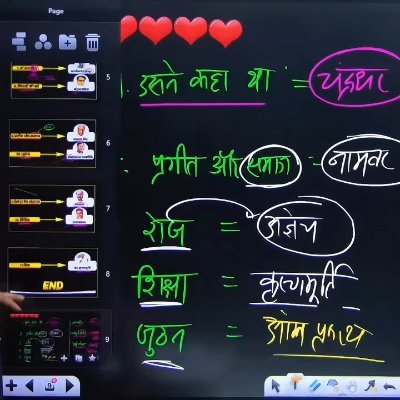 Page
5
6
7
8
9
END
1. उसने कहा था = चंद्रधर
: प्रगीत और समाज - नामवर
रोज = अज्ञेय
शिक्षा = कृष्णमूर्ति
जूठन = ओम प्रकाश